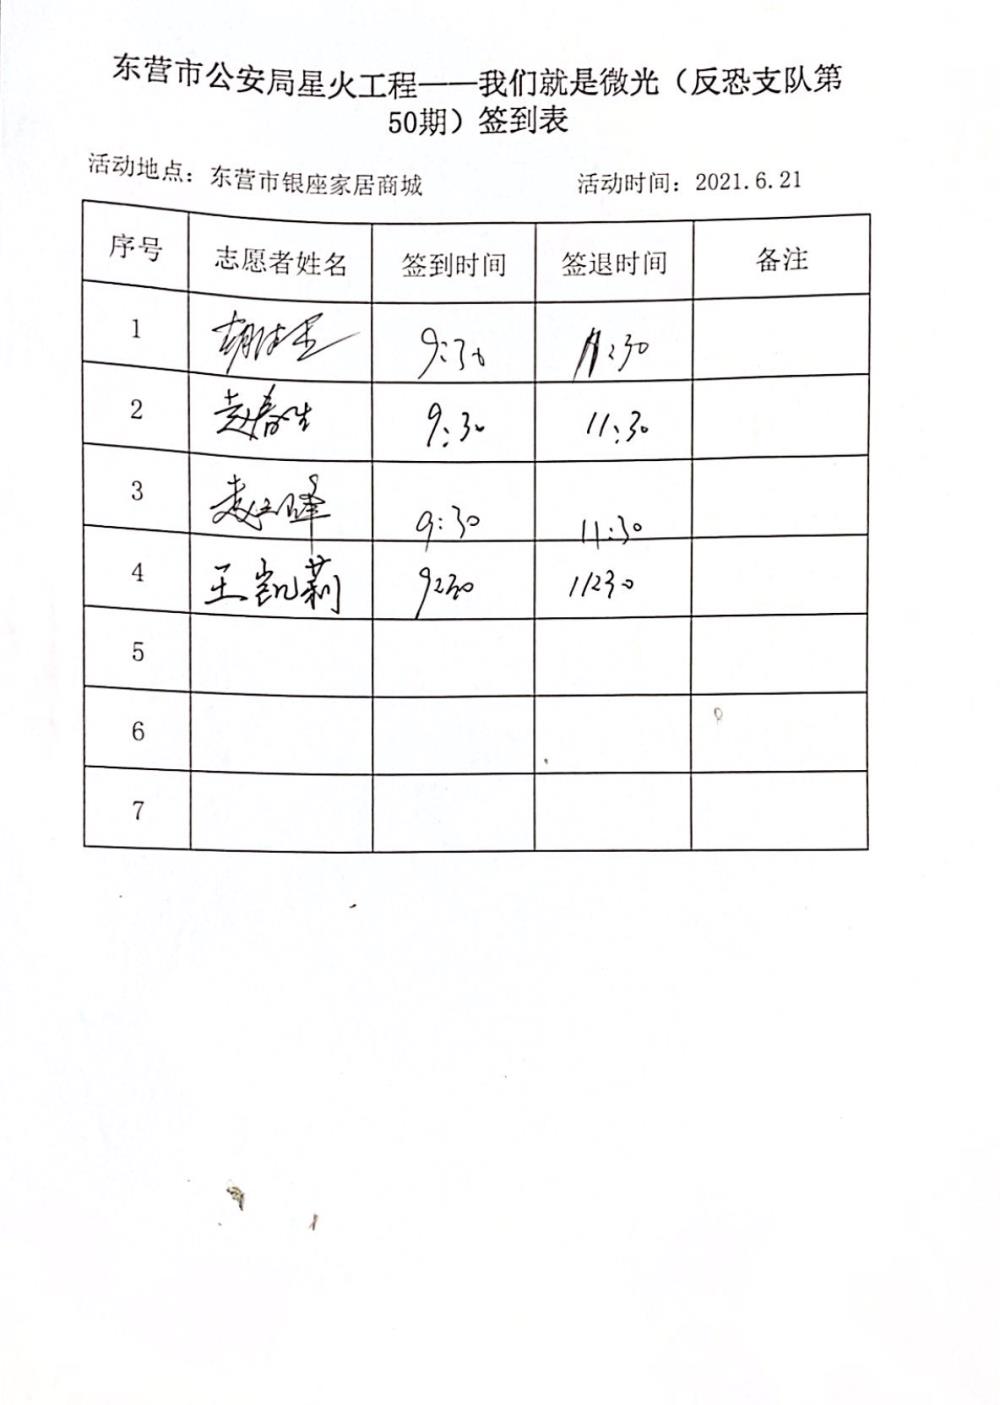 东营市公安局星火工程——我们就是微光（反恐支队第
50期）签到表
活动地点：东营市银座家居商城 活动时间：2021.6.21
序号 志愿者姓名 签到时间 签退时间 备注
1 9:30 11:30
2 赵春生 9:30 11:30
3 9:30 11:30
4 王凯莉 9:30 11:30
5
6
7